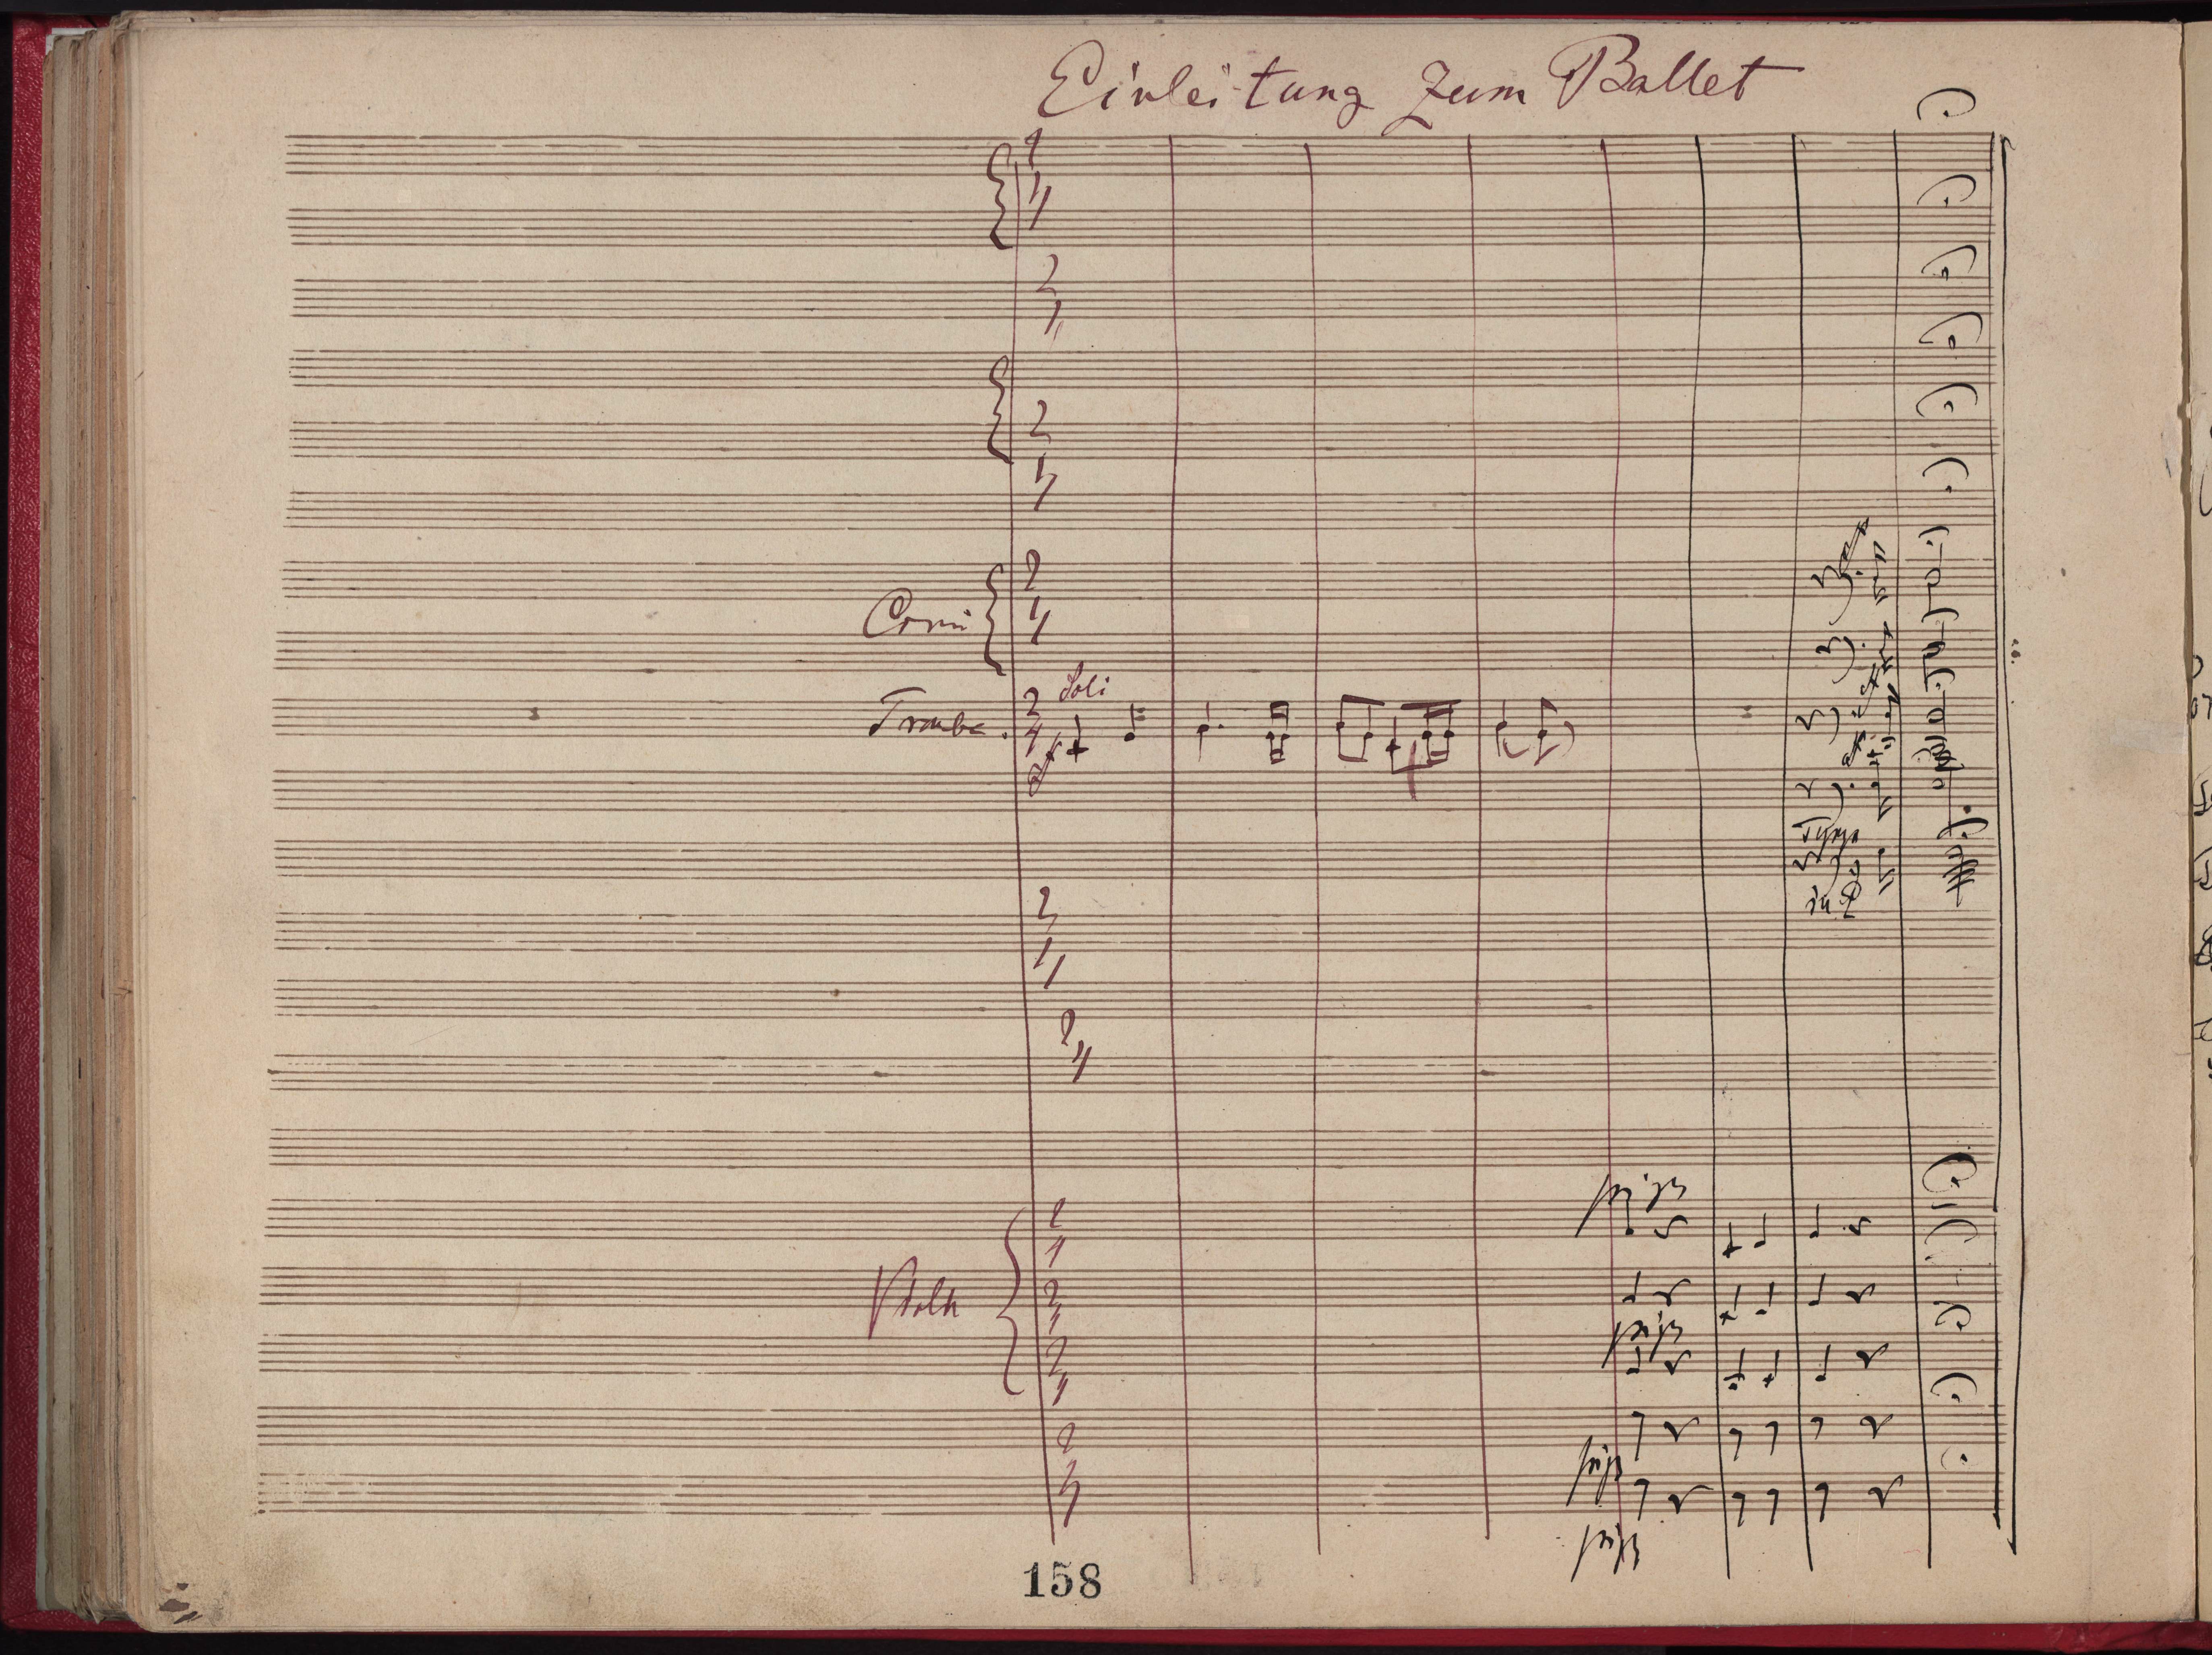 Einleitung zum Ballet
Corni
Soli
Trombe.
Tymp
in D
pizz
pizz
pizz
pizz
158